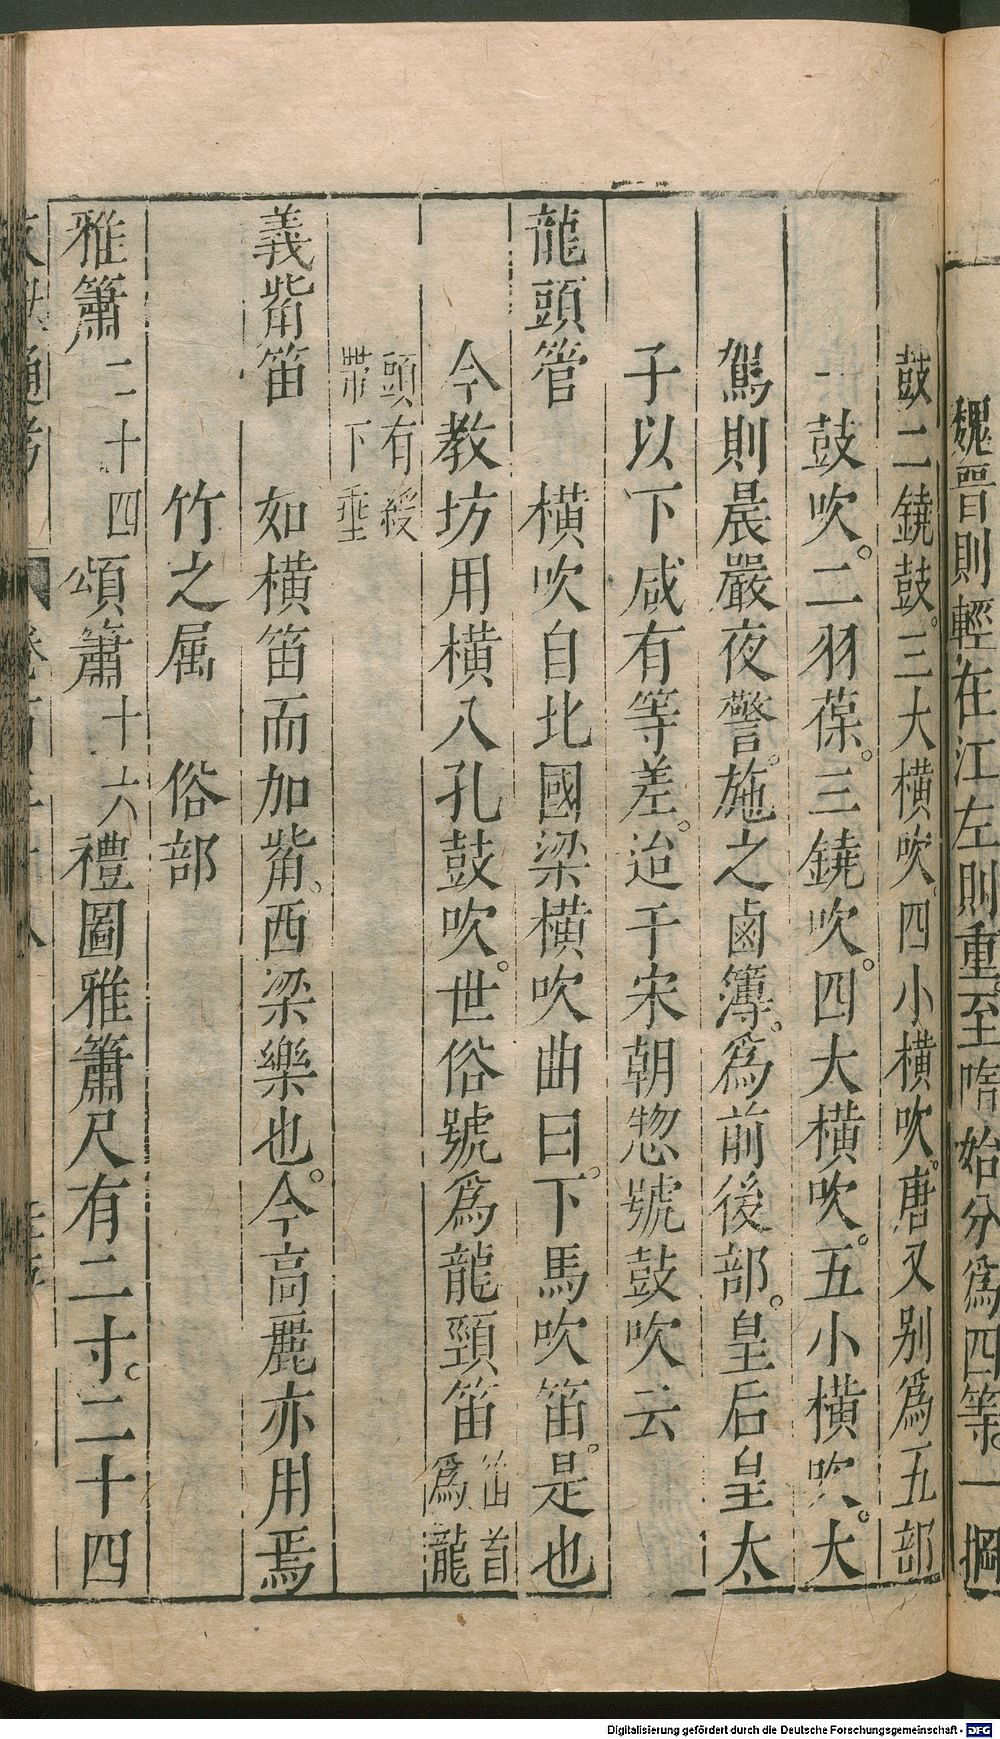 魏晋則輕在江左則重至隋始分爲四等。一掆
鼓二鐃鼓。三大橫吹。四小橫吹。唐又别爲五部
一鼓吹。二羽葆。三鐃吹。四大橫吹。五小橫吹。大
駕則晨嚴夜警。施之鹵簿。爲前後部。皇后皇太
子以下咸有等差。迨于宋朝惣號鼓吹云
龍頭管 橫吹自北國梁橫吹曲曰。下馬吹笛。是也
今教坊用橫八孔鼓吹。世俗號爲龍頸笛笛首爲龍
頭有綬帶下垂
義觜笛 如橫笛而加觜。西梁樂也。今高麗亦用焉
竹之属 俗部
雅簫二十四 頌簫十六 禮圖雅簫尺有二寸。二十四
Digitalisierung gefördert durch die Deutsche Forschungsgemeinschaft - DFG